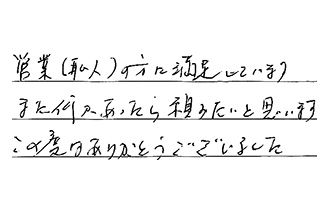 営業(私人)の方に満足しています
また何かあったら頼みたいと思います
この度はありがとうございました